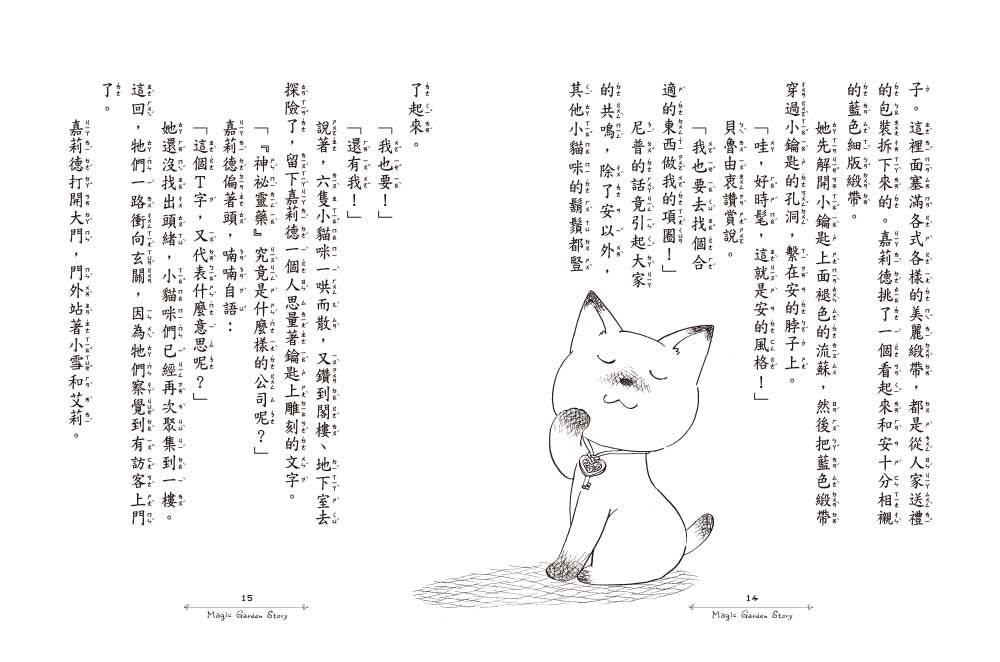 子。這裡面塞滿各式各樣的美麗緞帶，都是從人家送禮
的包裝拆下來的。嘉莉德挑了一個看起來和安十分相襯
的藍色細版緞帶。
她先解開小鑰匙上面褪色的流蘇，然後把藍色緞帶
穿過小鑰匙的孔洞，繫在安的脖子上。
「哇，好時髦，這就是安的風格！」
貝魯由衷讚賞說。
「我也要去找個合
適的東西做我的項圈！」
尼普的話竟引起大家
的共鳴，除了安以外，
其他小貓咪的鬍鬚都豎
14
Magic Garden Story
了起來。
「我也要！」
「還有我！」
說著，六隻小貓咪一哄而散，又鑽到閣樓、地下室去
探險了，留下嘉莉德一個人思量著鑰匙上雕刻的文字。
「『神祕靈藥』究竟是什麼樣的公司呢？」
嘉莉德偏著頭，喃喃自語：
「這個T字，又代表什麼意思呢？」
她還沒找出頭緒，小貓咪們已經再次聚集到一樓。
這回，牠們一路衝向玄關，因為牠們察覺到有訪客上門
了。
嘉莉德打開大門，門外站著小雪和艾莉。
15
Magic Garden Story